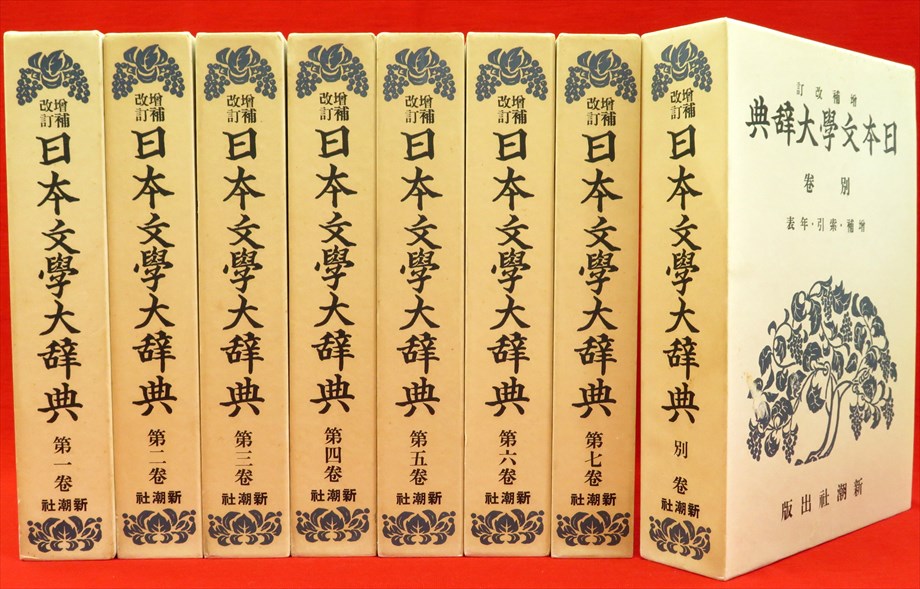 增補
改訂
日本文學大辞典
第一卷
新潮社
增補
改訂
日本文學大辞典
第二卷
新潮社
增補
改訂
日本文學大辞典
第三卷
新潮社
增補
改訂
日本文學大辞典
第四卷
新潮社
增補
改訂
日本文學大辞典
第五卷
新潮社
增補
改訂
日本文學大辞典
第六卷
新潮社
增補
改訂
日本文學大辞典
第七卷
新潮社
增補
改訂
日本文學大辞典
別卷
新潮社
增補改訂
日本文學大辞典
別卷
增補・索引・年表
新潮社出版